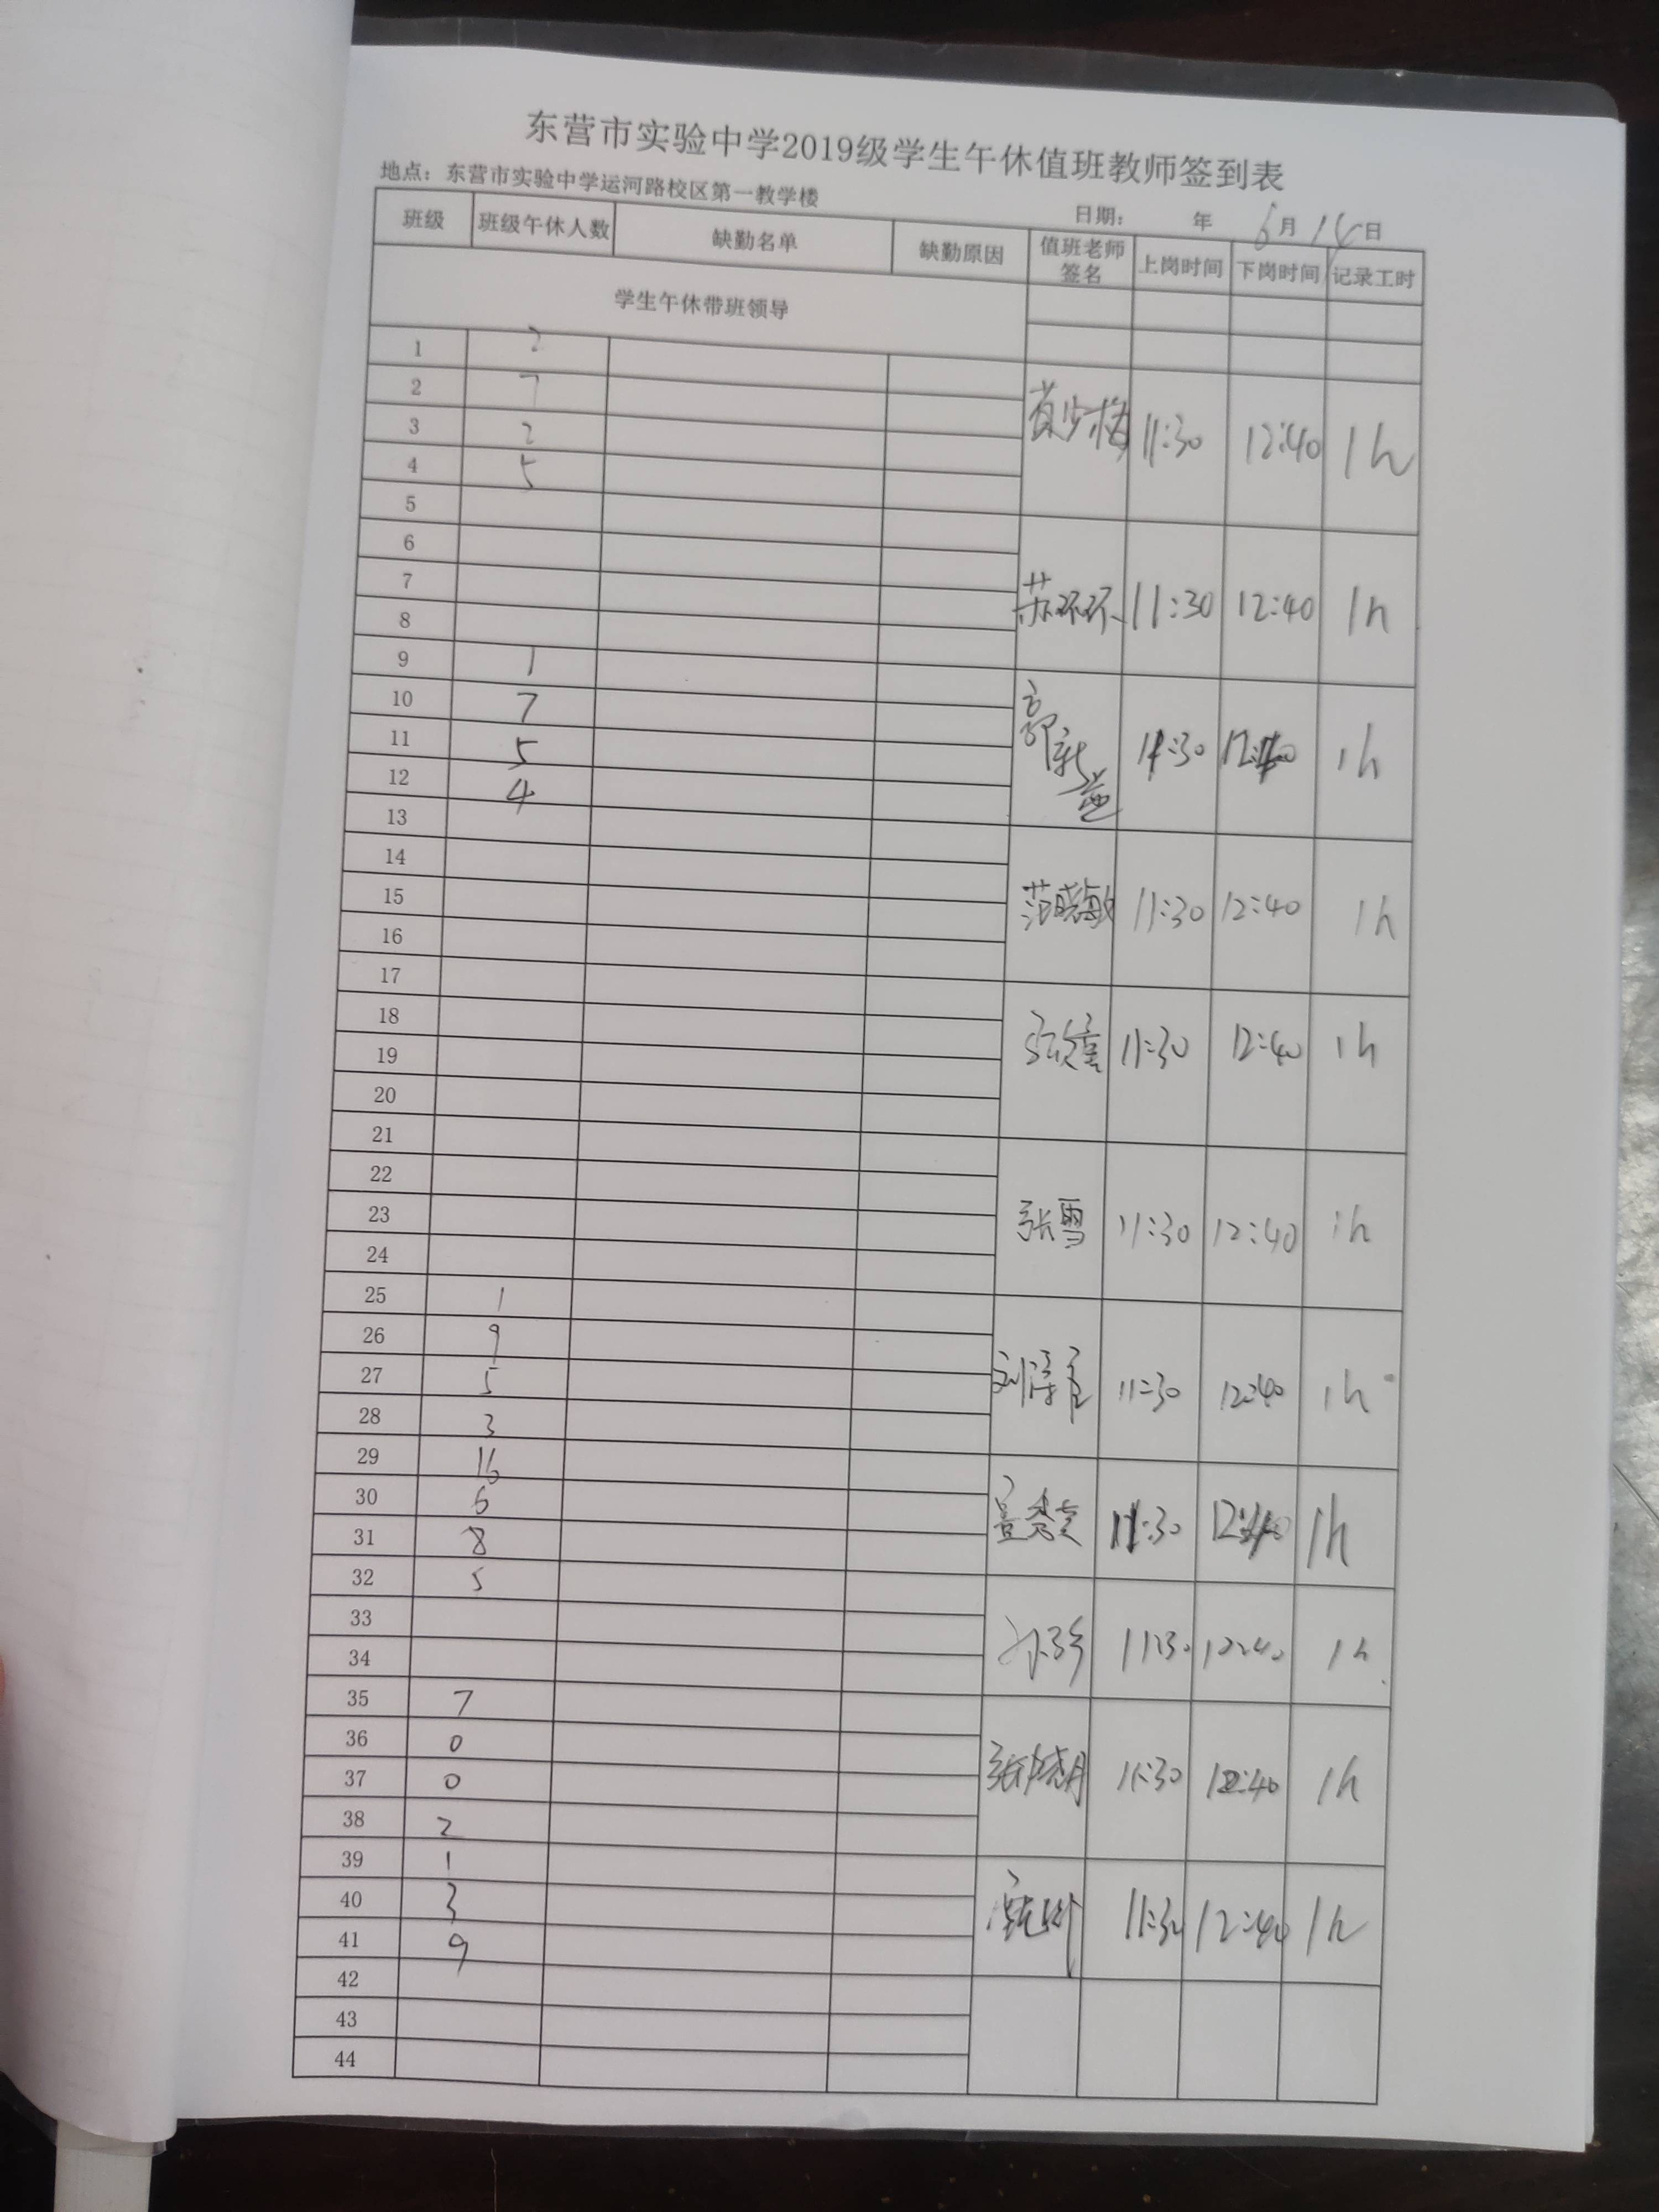 东营市实验中学2019级学生午休值班教师签到表
地点：东营市实验中学运河路校区第一教学楼 日期： 年 6月14日
班级 班级午休人数 缺勤名单 缺勤原因 值班老师签名 上岗时间 下岗时间 记录工时
学生午休带班领导
1 2
2 7 11:30 12:40 1h
3 2
4 5
5
6
7 苏环环 11:30 12:40 1h
8
9 1
10 7
11 5 11:30 12:40 1h
12 4
13
14
15 范晓敏 11:30 12:40 1h
16
17
18
19 11:30 12:40 1h
20
21
22
23 张雪 11:30 12:40 1h
24
25 1
26 9
27 5 11:30 12:40 1h
28 3
29 16
30 6
31 8 11:30 12:40 1h
32 5
33
34 11:30 12:40 1h
35 7
36 0
37 0 张晓月 11:30 12:40 1h
38 2
39 1
40 3 11:30 12:40 1h
41 9
42
43
44